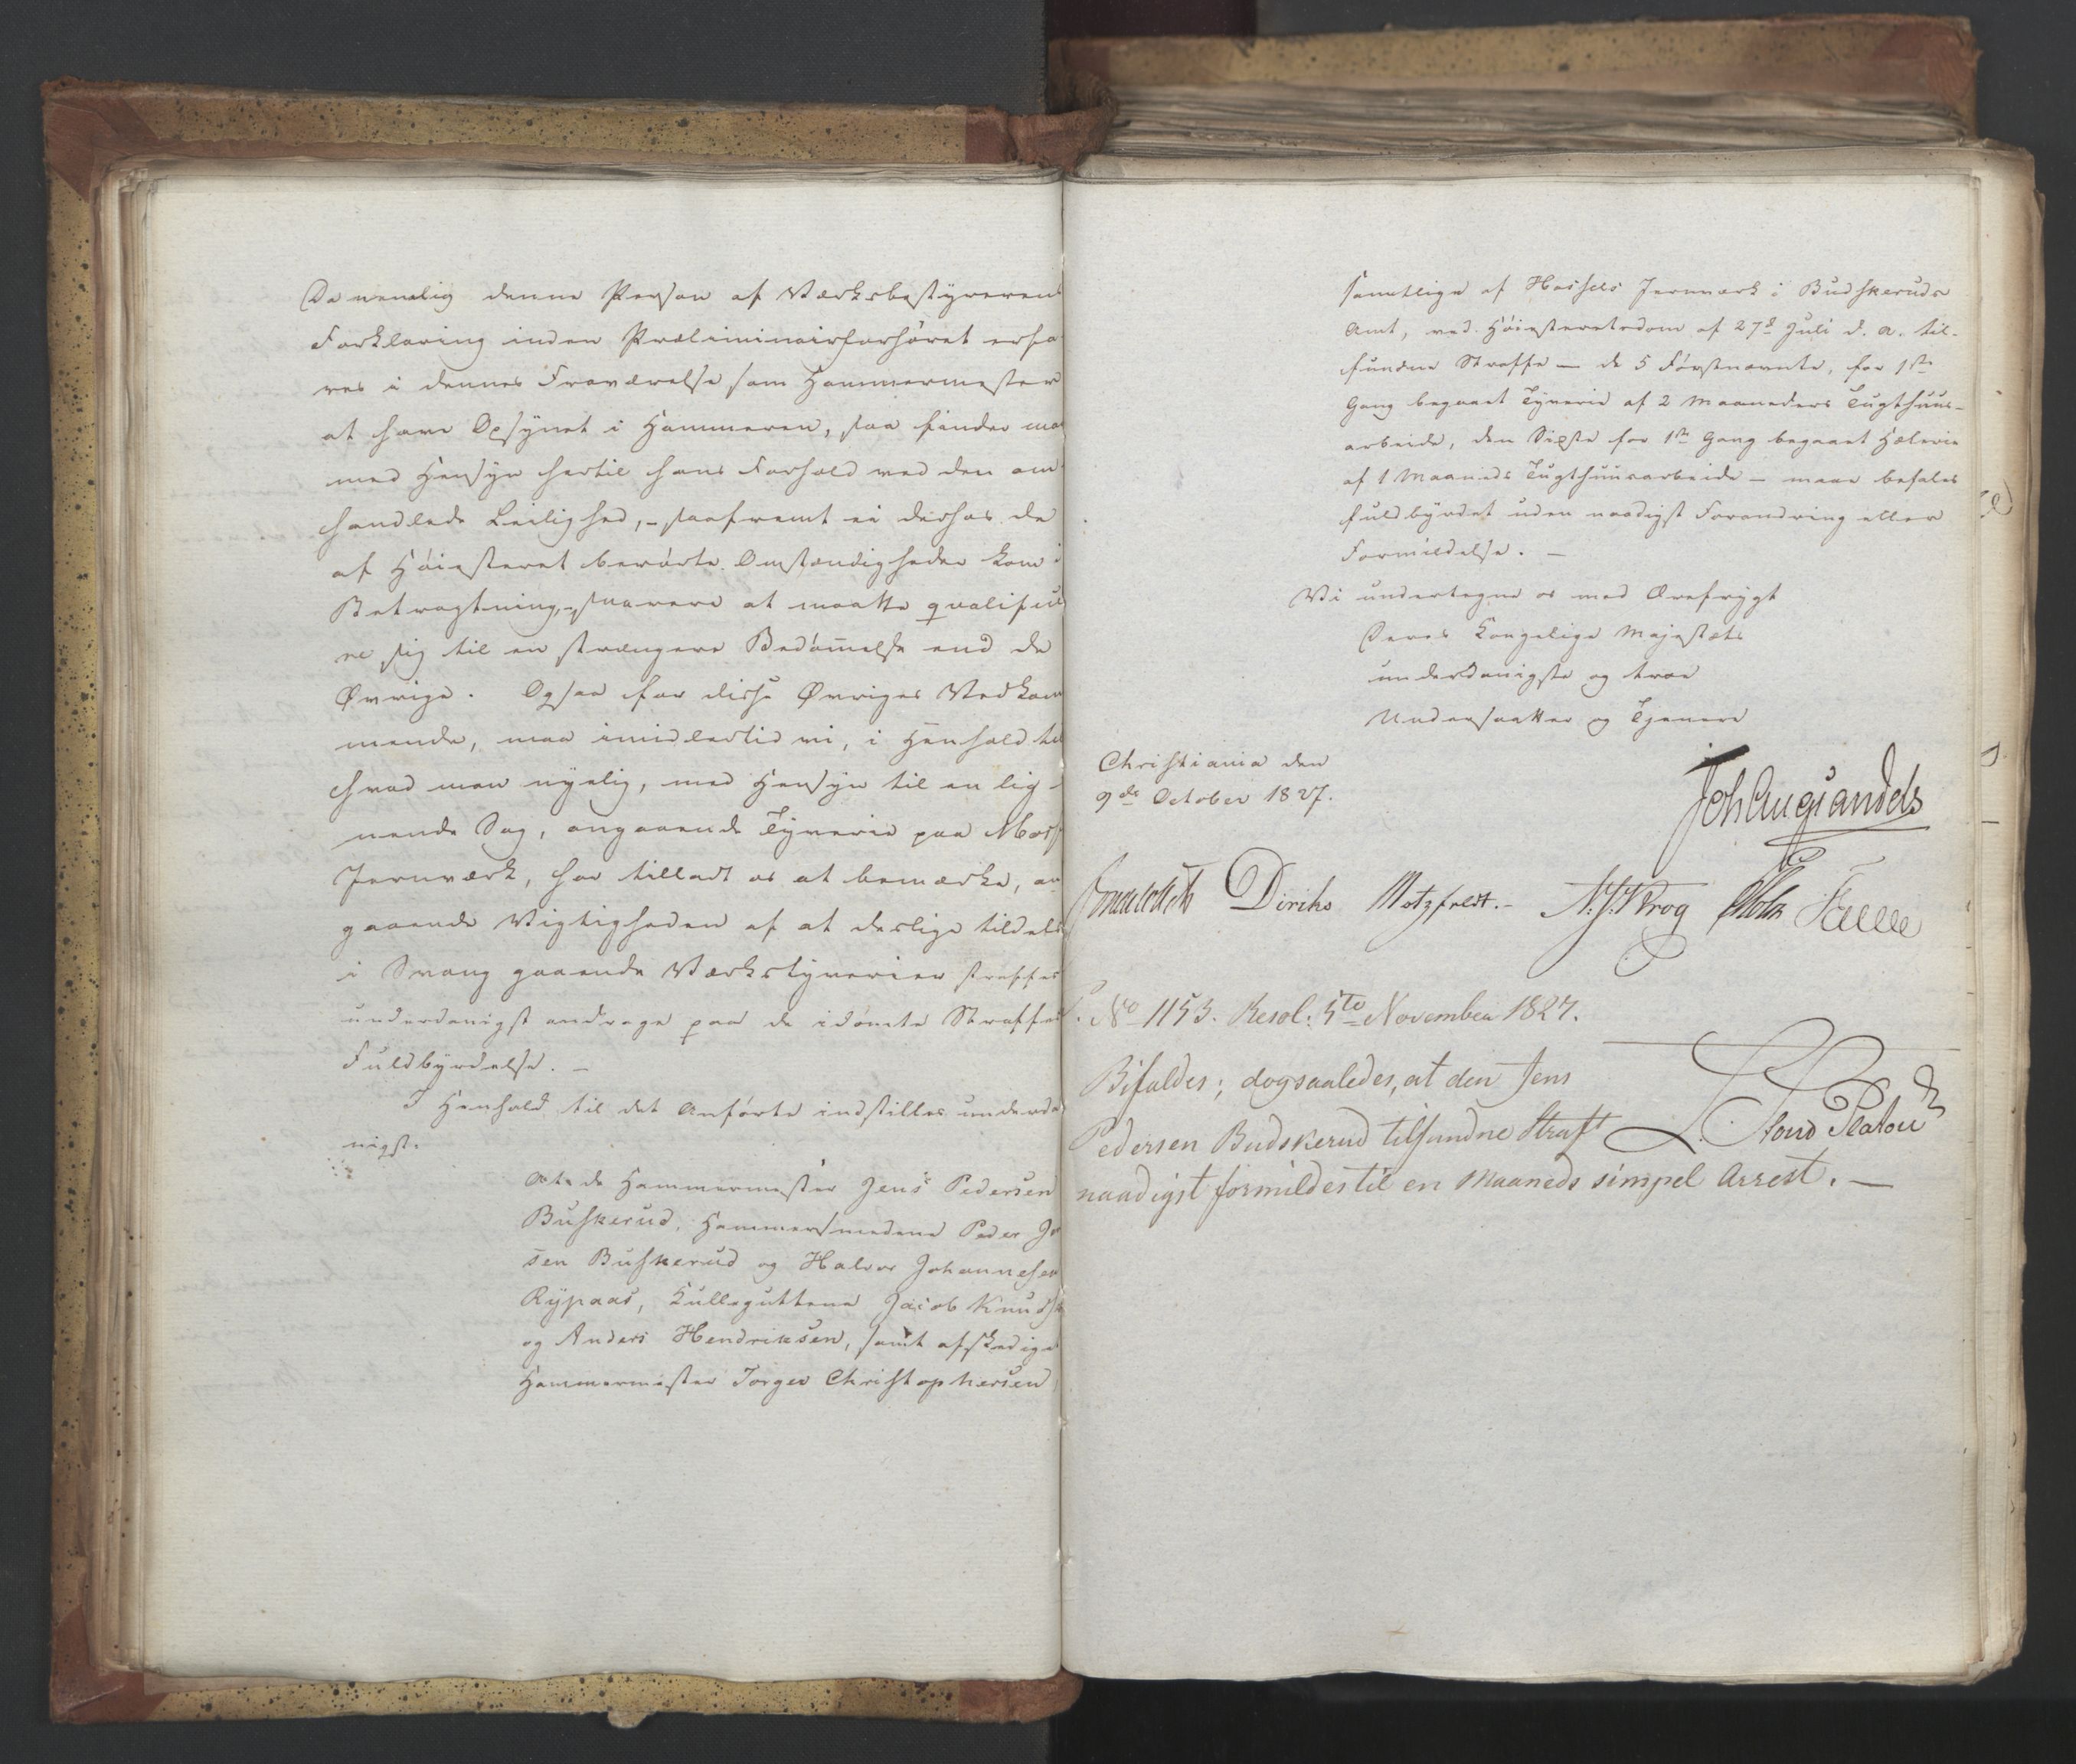 Da nemlig denne Person af Værksbestyrerens
Forklaring inden Præliminairforhöret erfa
res i dennes Fraværelse som Hammermester
at have Opsynet i Hammeren, saa finder ma
med Hensyn hertil hans Forhold ved den om
handlede Leilighed, – saafremt ei derhos de
af Höiesteret berörte Omstændigheder kom i
Betragtning, – snarere at maatte qualifice
re sig til en strængere Bedömmelse end de
Øvrige. Ogsaa for disse Øvriges Vedkom
mende, maa imidlertid vi, i Henhold til
hvad man nyelig, med Hensyn til en lig-
nende Sag, angaaende Tyverie paa Moss
Jernværk, har tilladt os at bemærke, an
gaaende Vigtigheden af at deslige tildels
i Svang gaaende Værkstyverier straffes
underdanigst andrage paa de idömte Straffes
Fuldbyrdelse. –
I Henhold til det Anförte indstilles underda
nigst.
At de Hammermester Jens Pedersen
Buskerud, Hammersmedene Peder Je
sen Buskerud og Halvor Johannesen
Rypaas, Kullegutterne Jacob Knudse
og Anders Hendriksen, samt afskedige
Hammermester Torger Christophersen,
samtlige af Hassels Jernværk i Budskeruds
Amt, ved Höiesteretsdom af 27d Juli d. a. til-
fundne Straffe – de 5 Förstnævnte, for 1ste
Gang begaaet Tyverie af 2 Maaneders Tugthuus-
arbeide, den Sidste for 1ste Gang begaaet Hælerie
af 1 Maaneds Tugthuusarbeide – maae befales
fuldbyrdet uden naadigst Forandring eller
Formildelse. –
Vi undertegne os med Ærefrygt
Deres Kongelige Majestæts
underdanigste og troe
Undersaatter og Tjenere
Christiania den
9de October 1827.
Joh Aug Sandels
Diriks Motzfeldt. – Krog Holst Fasting
No 1153. Resol: 5te November 1827.
Bifaldes; dogsaaledes, at den Jens
Pedersen Budskerud tilfundne Straf
L. Stoud Platou
naadigst formildes til en Maaneds simpel Arrest. –